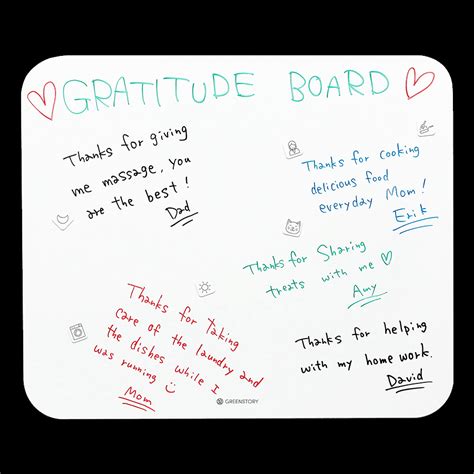 GRATITUDE BOARD
Thanks for giving
me massage, you
are the best!
Dad
Thanks for cooking
delicious food
everyday Mom!
Erik
Thanks for Sharing
treats with me ♡
Amy
Thanks for Taking
care of the laundry and
the dishes while I
was running ☺
Mom
Thanks for helping
with my home work.
David
GREENSTORY